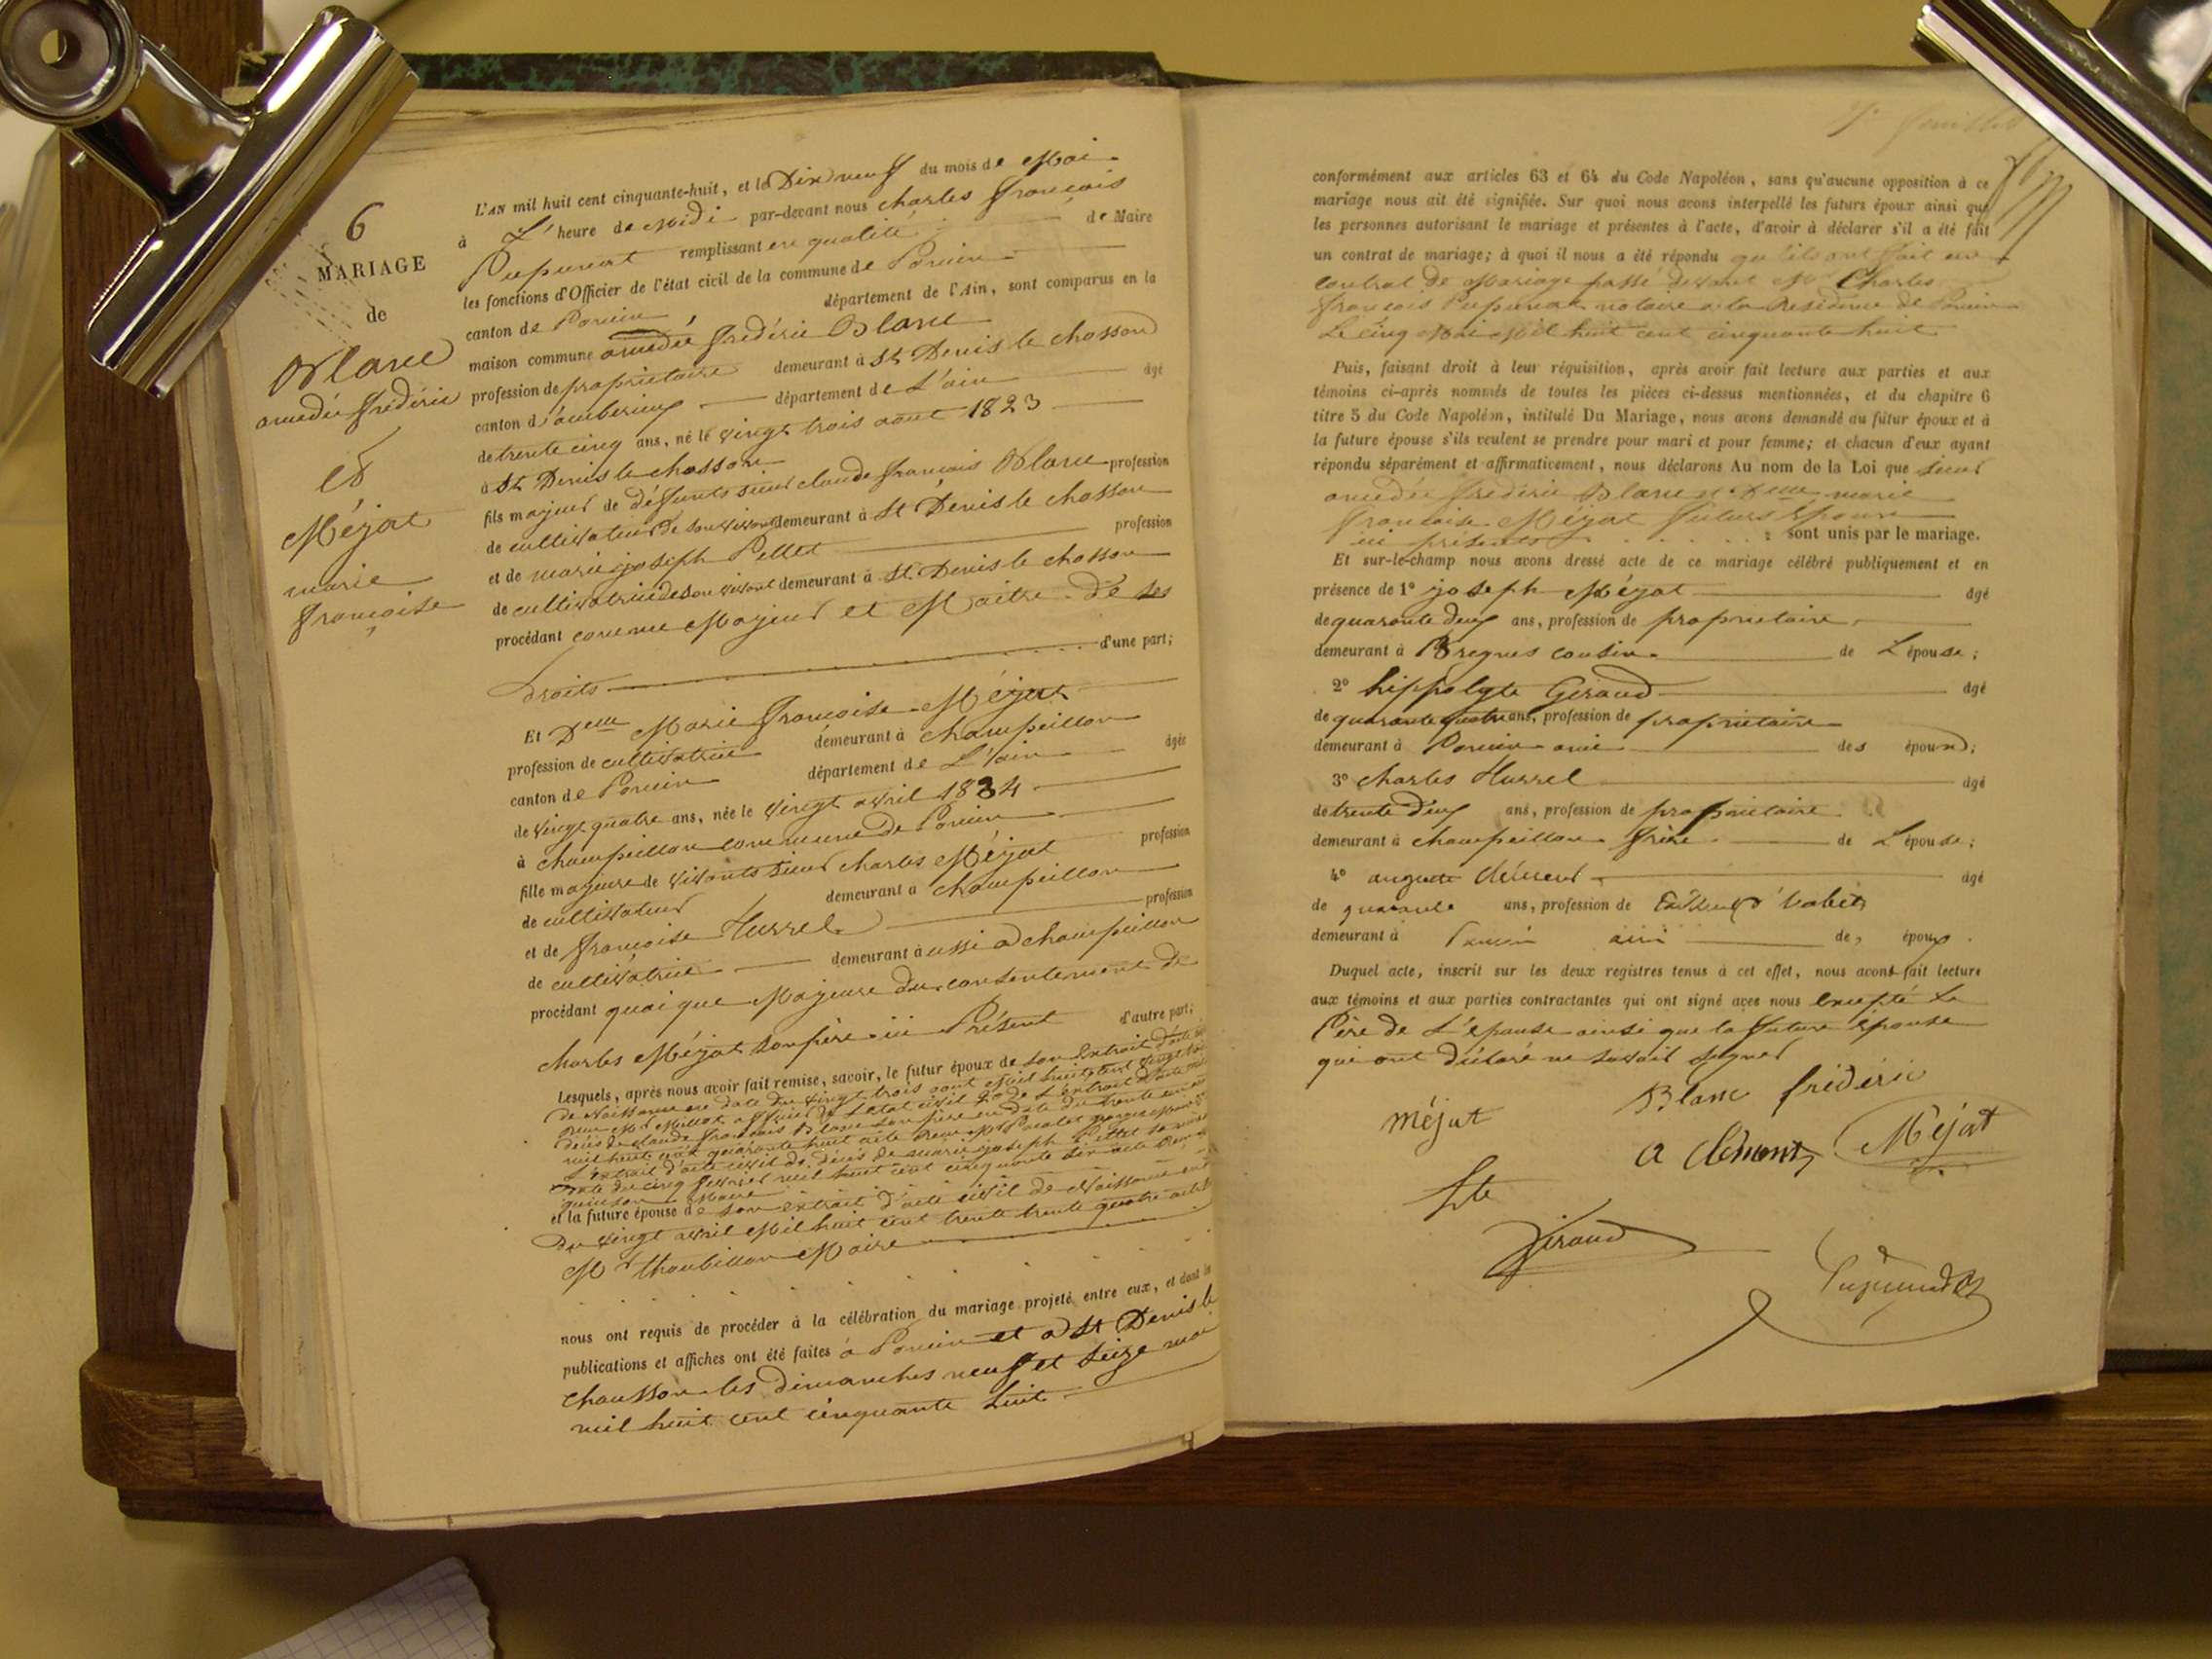 6
MARIAGE
de
Blanc
amedée frédéric
et
Méjat
marie
françoise
L'AN mil huit cent cinquante-huit, et le Dix neuf du mois de Mai
à L'heure de Midi par-devant nous charles françois
remplissant en qualité de Maire
les fonctions d'Officier de l'état civil de la commune de Poncin
canton de Poncin département de l'Ain, sont comparus en la
maison commune amedée frédéric Blanc
profession de proprietaire demeurant à St Denis le chosson
canton d'amberieux département de L'ain âgé
de trente cinq ans, né le vingt trois aout 1823
à St Denis le chosson
fils majeur de défunts sieur claude françois Blanc profession
de cultivateur de son vivant demeurant à St Denis le chosson
et de marie joseph Pellet profession
de cultivatrice de son vivant demeurant à St Denis le chosson
procédant comme Majeur et Maitre de ses
droits d'une part;
Et Delle Marie françoise Méjat
profession de cultivatrice demeurant à champeillon
canton de Poncin département de L'ain âgée
de vingt quatre ans, née le vingt avril 1834
à champeillon commune de Poncin
fille majeure de vivants sieur charles Méjat profession
de cultivateur demeurant à champeillon
et de françoise Hurrel profession
de cultivatrice demeurant à aussi a champeillon
procédant quoique Majeure du consentement de
charles Méjat son père ici Présent d'autre part;
Lesquels, après nous avoir fait remise, savoir, le futur époux de son Extrait d'acte
de Naissance en date du vingt trois aout Mil huit cent vingt trois
Mr Millet officier de l'état civil 2o de L'extrait d'acte de
décès de claude françois Blanc son père en date du trente
mil huit cent quarante huit
L'extrait d'acte civil de décès de marie joseph Pellet sa mère
date du cinq fevrier mil huit cent cinquante six
Maire
et la future épouse de son extrait d'acte civil de Naissance en
Du vingt avril Mil huit cent trente trente quatre
Mr Thoubillon Maire
nous ont requis de procéder à la célébration du mariage projeté entre eux, et dont les
publications et affiches ont été faites à Poncin et a St Denis le
chausson les dimanches neuf et seize mai
mil huit cent cinquante huit
conformément aux articles 63 et 64 du Code Napoléon, sans qu'aucune opposition à ce
mariage nous ait été signifiée. Sur quoi nous avons interpellé les futurs époux ainsi que
les personnes autorisant le mariage et présentes à l'acte, d'avoir à déclarer s'il a été fait
un contrat de mariage; à quoi il nous a été répondu qu'ils ont fait un
contrat de Mariage passé devant Me Charles
françois notaire a la Residence de Poncin
Le cinq Mai Mil huit cent cinquante huit
Puis, faisant droit à leur réquisition, après avoir fait lecture aux parties et aux
témoins ci-après nommés de toutes les pièces ci-dessus mentionnées, et du chapitre 6
titre 5 du Code Napoléon, intitulé Du Mariage, nous avons demandé au futur époux et à
la future épouse s'ils veulent se prendre pour mari et pour femme; et chacun d'eux ayant
répondu séparément et affirmativement, nous déclarons Au nom de la Loi que sieur
amedée frederic Blanc et Delle marie
francoise Méjat futurs Epoux
ici présents sont unis par le mariage.
Et sur-le-champ nous avons dressé acte de ce mariage célébré publiquement et en
présence de 1o joseph Méjat âgé
de quarante deux ans, profession de proprietaire
demeurant à Bregnes cousin de L'épouse;
2o hippolyte Giraud âgé
de quarante quatre ans, profession de proprietaire
demeurant à Poncin ami des époux;
3o charles Hurrel âgé
de trente deux ans, profession de proprietaire
demeurant à champeillon frère de L'épouse;
4o auguste clément âgé
de quarante ans, profession de
demeurant à Poncin ami des époux.
Duquel acte, inscrit sur les deux registres tenus à cet effet, nous avons fait lecture
aux témoins et aux parties contractantes qui ont signé avec nous excepté le
Père de L'épouse ainsi que la future épouse
qui ont déclaré ne savoir signer
méjat
Blanc frédéric
a clément
Méjat
hte
Giraud